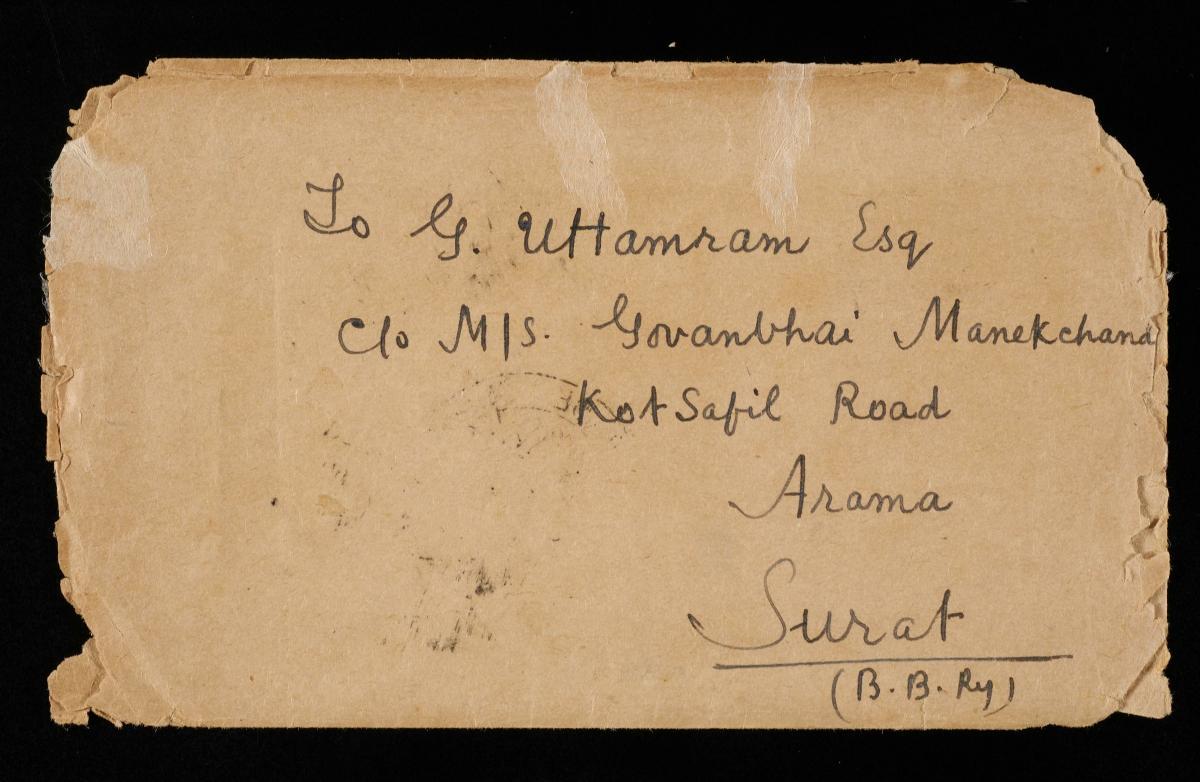 To G. Uttamram Esq
C/o M/s. Govanbhai Manekchand
Kot Safil Road
Arama
Surat
(B. B. Ry)